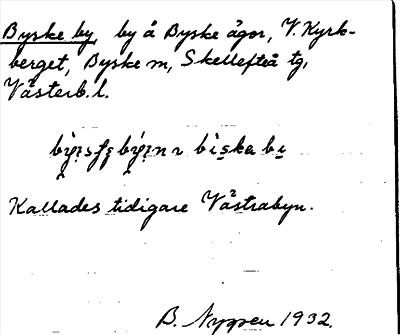 Byske by, by å Byske ägor, V. Kyrk-
berget, Byske sn, Skellefteå tg,
Västerb. l.
Kallades tidigare Västrabyn.
B. Nygren 1932.